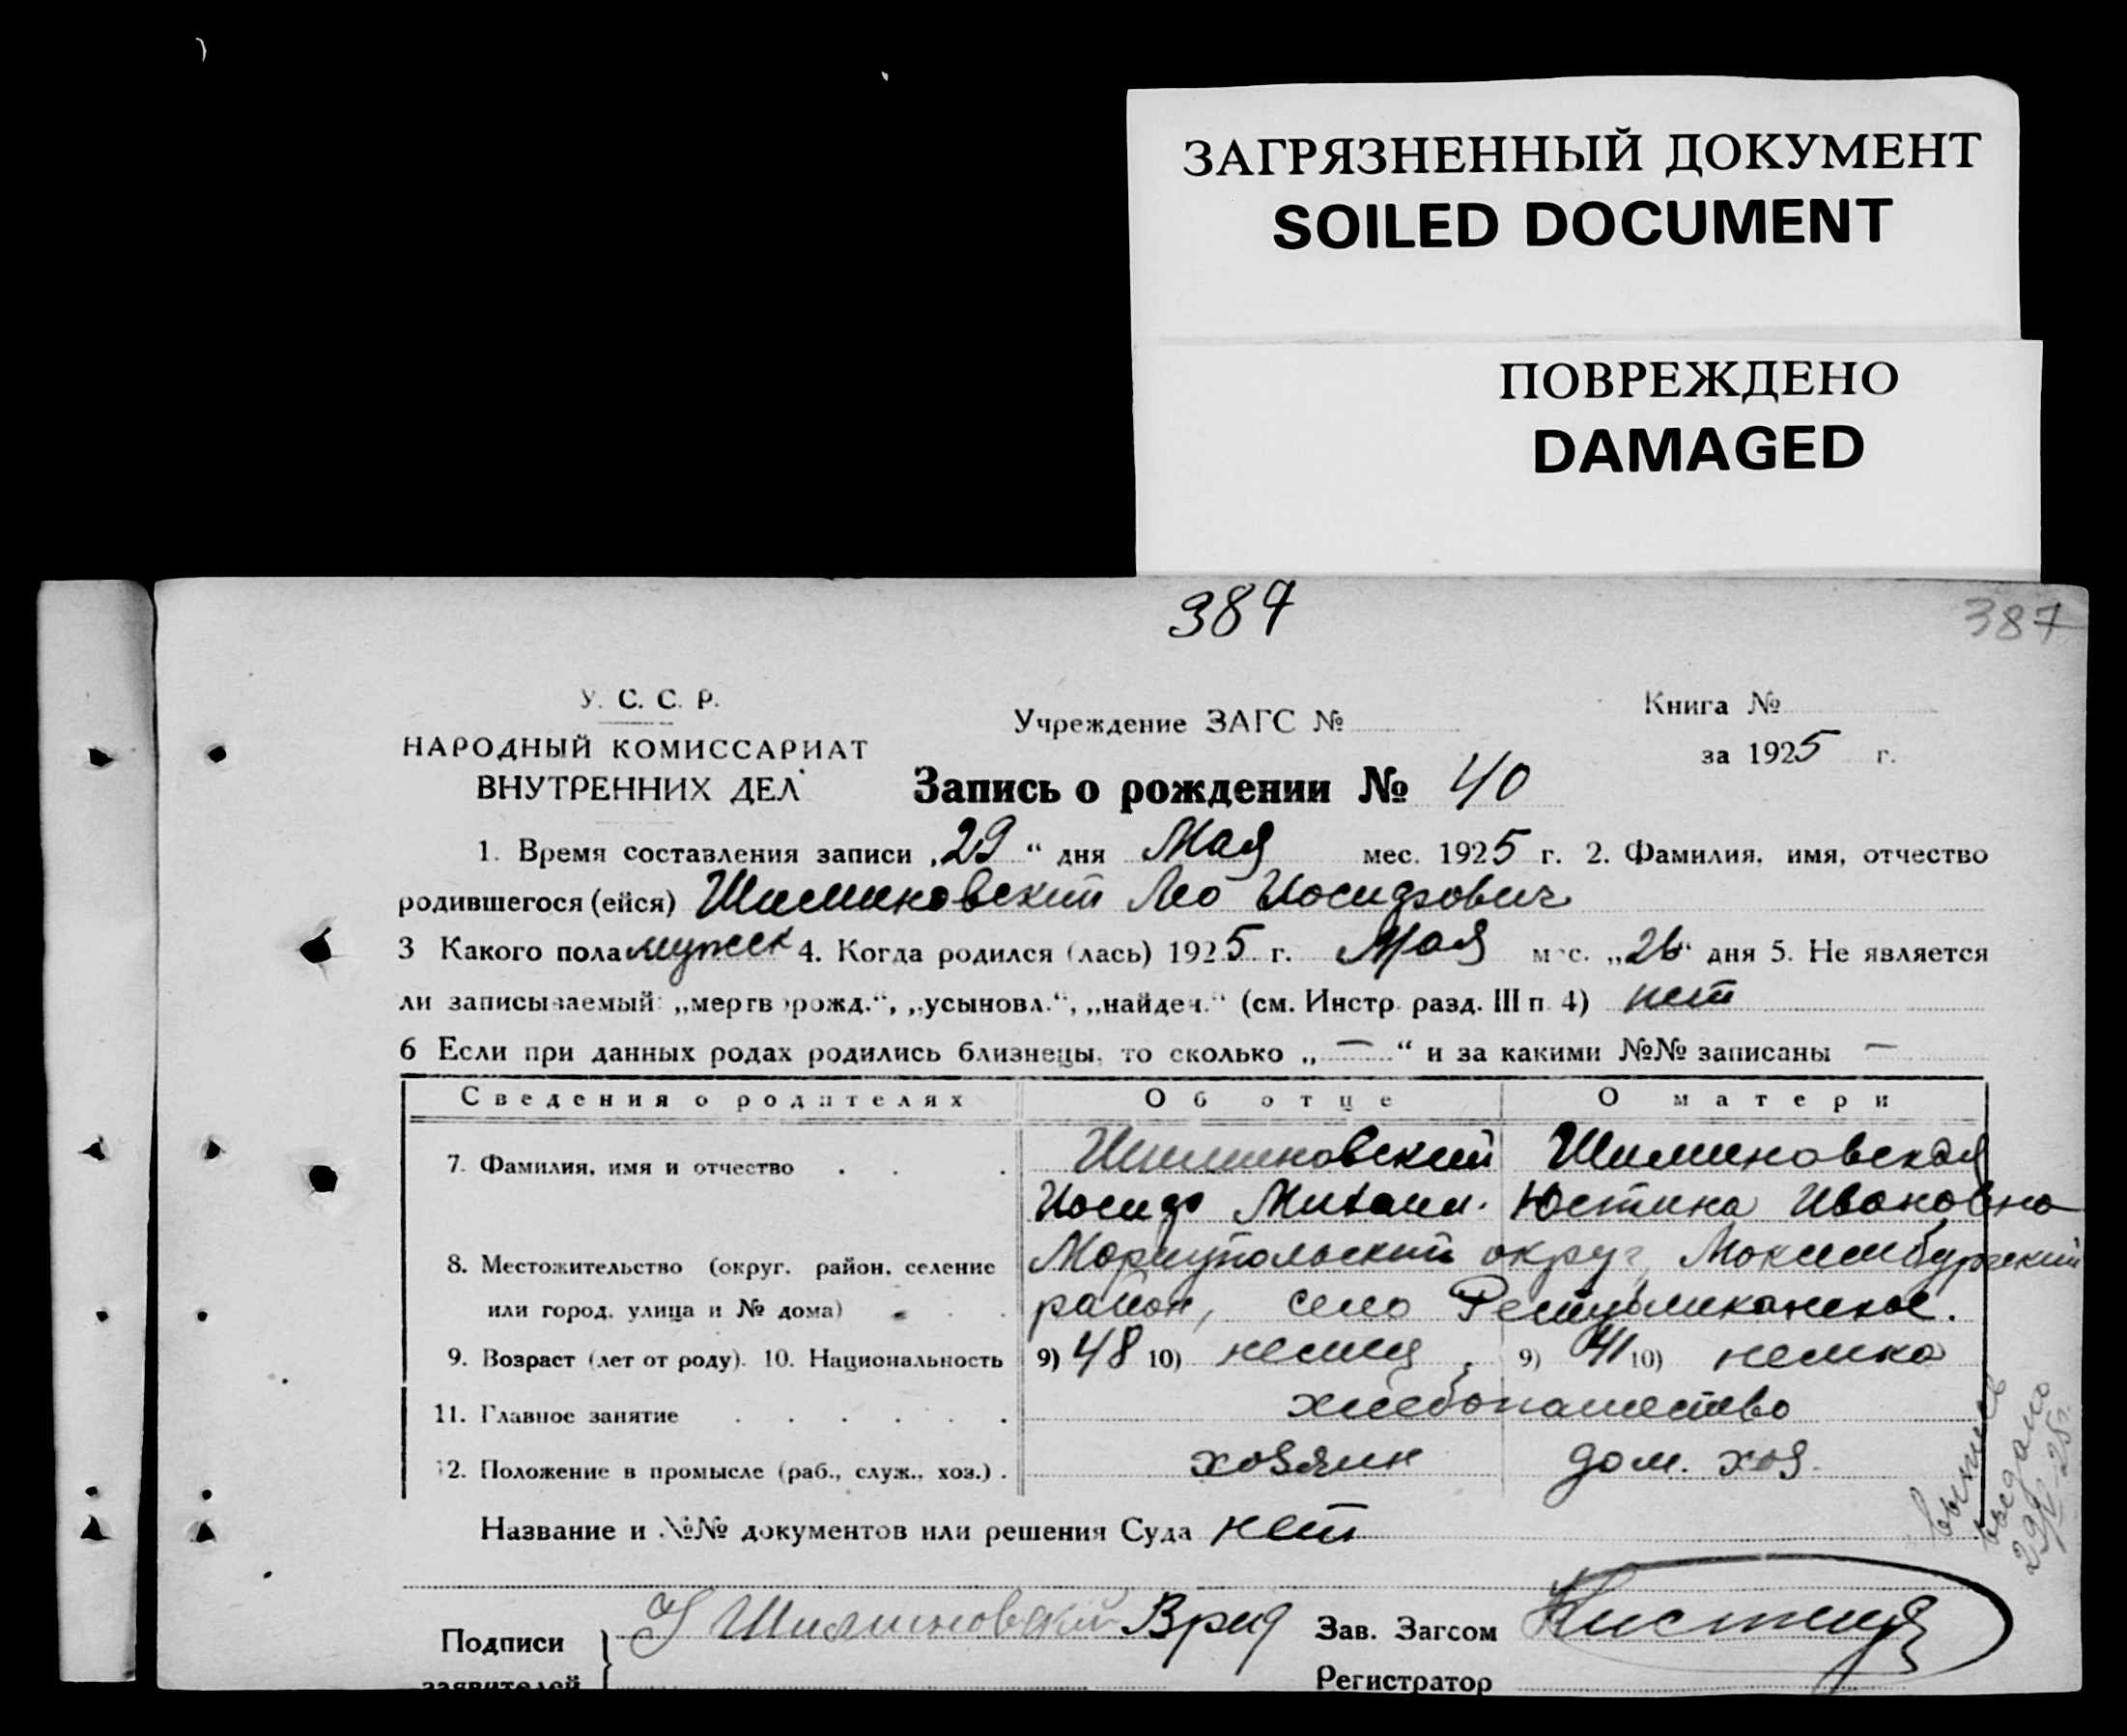 ЗАГРЯЗНЕННЫЙ ДОКУМЕНТ
SOILED DOCUMENT
ПОВРЕЖДЕНО
DAMAGED
387
387
У. С. С. Р.
НАРОДНЫЙ КОМИССАРИАТ
ВНУТРЕННИХ ДЕЛ
Учреждение ЗАГС №
Книга №
за 1925 г.
Запись о рождении № 40
1. Время составления записи „29“ дня Мая мес. 1925 г. 2. Фамилия, имя, отчество
родившегося (ейся) Шиминовский Лео Иосифович
3 Какого пола мужск 4. Когда родился (лась) 1925 г. Мая мес. „26“ дня 5. Не является
ли записываемый: „мертворожд.“, „усыновл.“, „найден.“ (см. Инстр. разд. III п. 4) нет
6 Если при данных родах родились близнецы, то сколько „—“ и за какими №№ записаны —
Сведения о родителях Об отце О матери
7. Фамилия, имя и отчество . . . Шиминовский Шиминовская
Иосиф Михаил. Юстина Ивановна
8. Местожительство (округ, район, селение Мариупольский округ,
или город, улица и № дома) район, село Республиканское.
9. Возраст (лет от роду). 10. Национальность 9) 48 10) немец, 9) 41 10) немка
11. Главное занятие . . . . . . хлебопашество
12. Положение в промысле (раб., служ., хоз.) . хозяин дом. хоз.
Название и №№ документов или решения Суда нет
выпись
выдана
Подписи И Шиминовский Врид Зав. Загсом
заявителей Регистратор